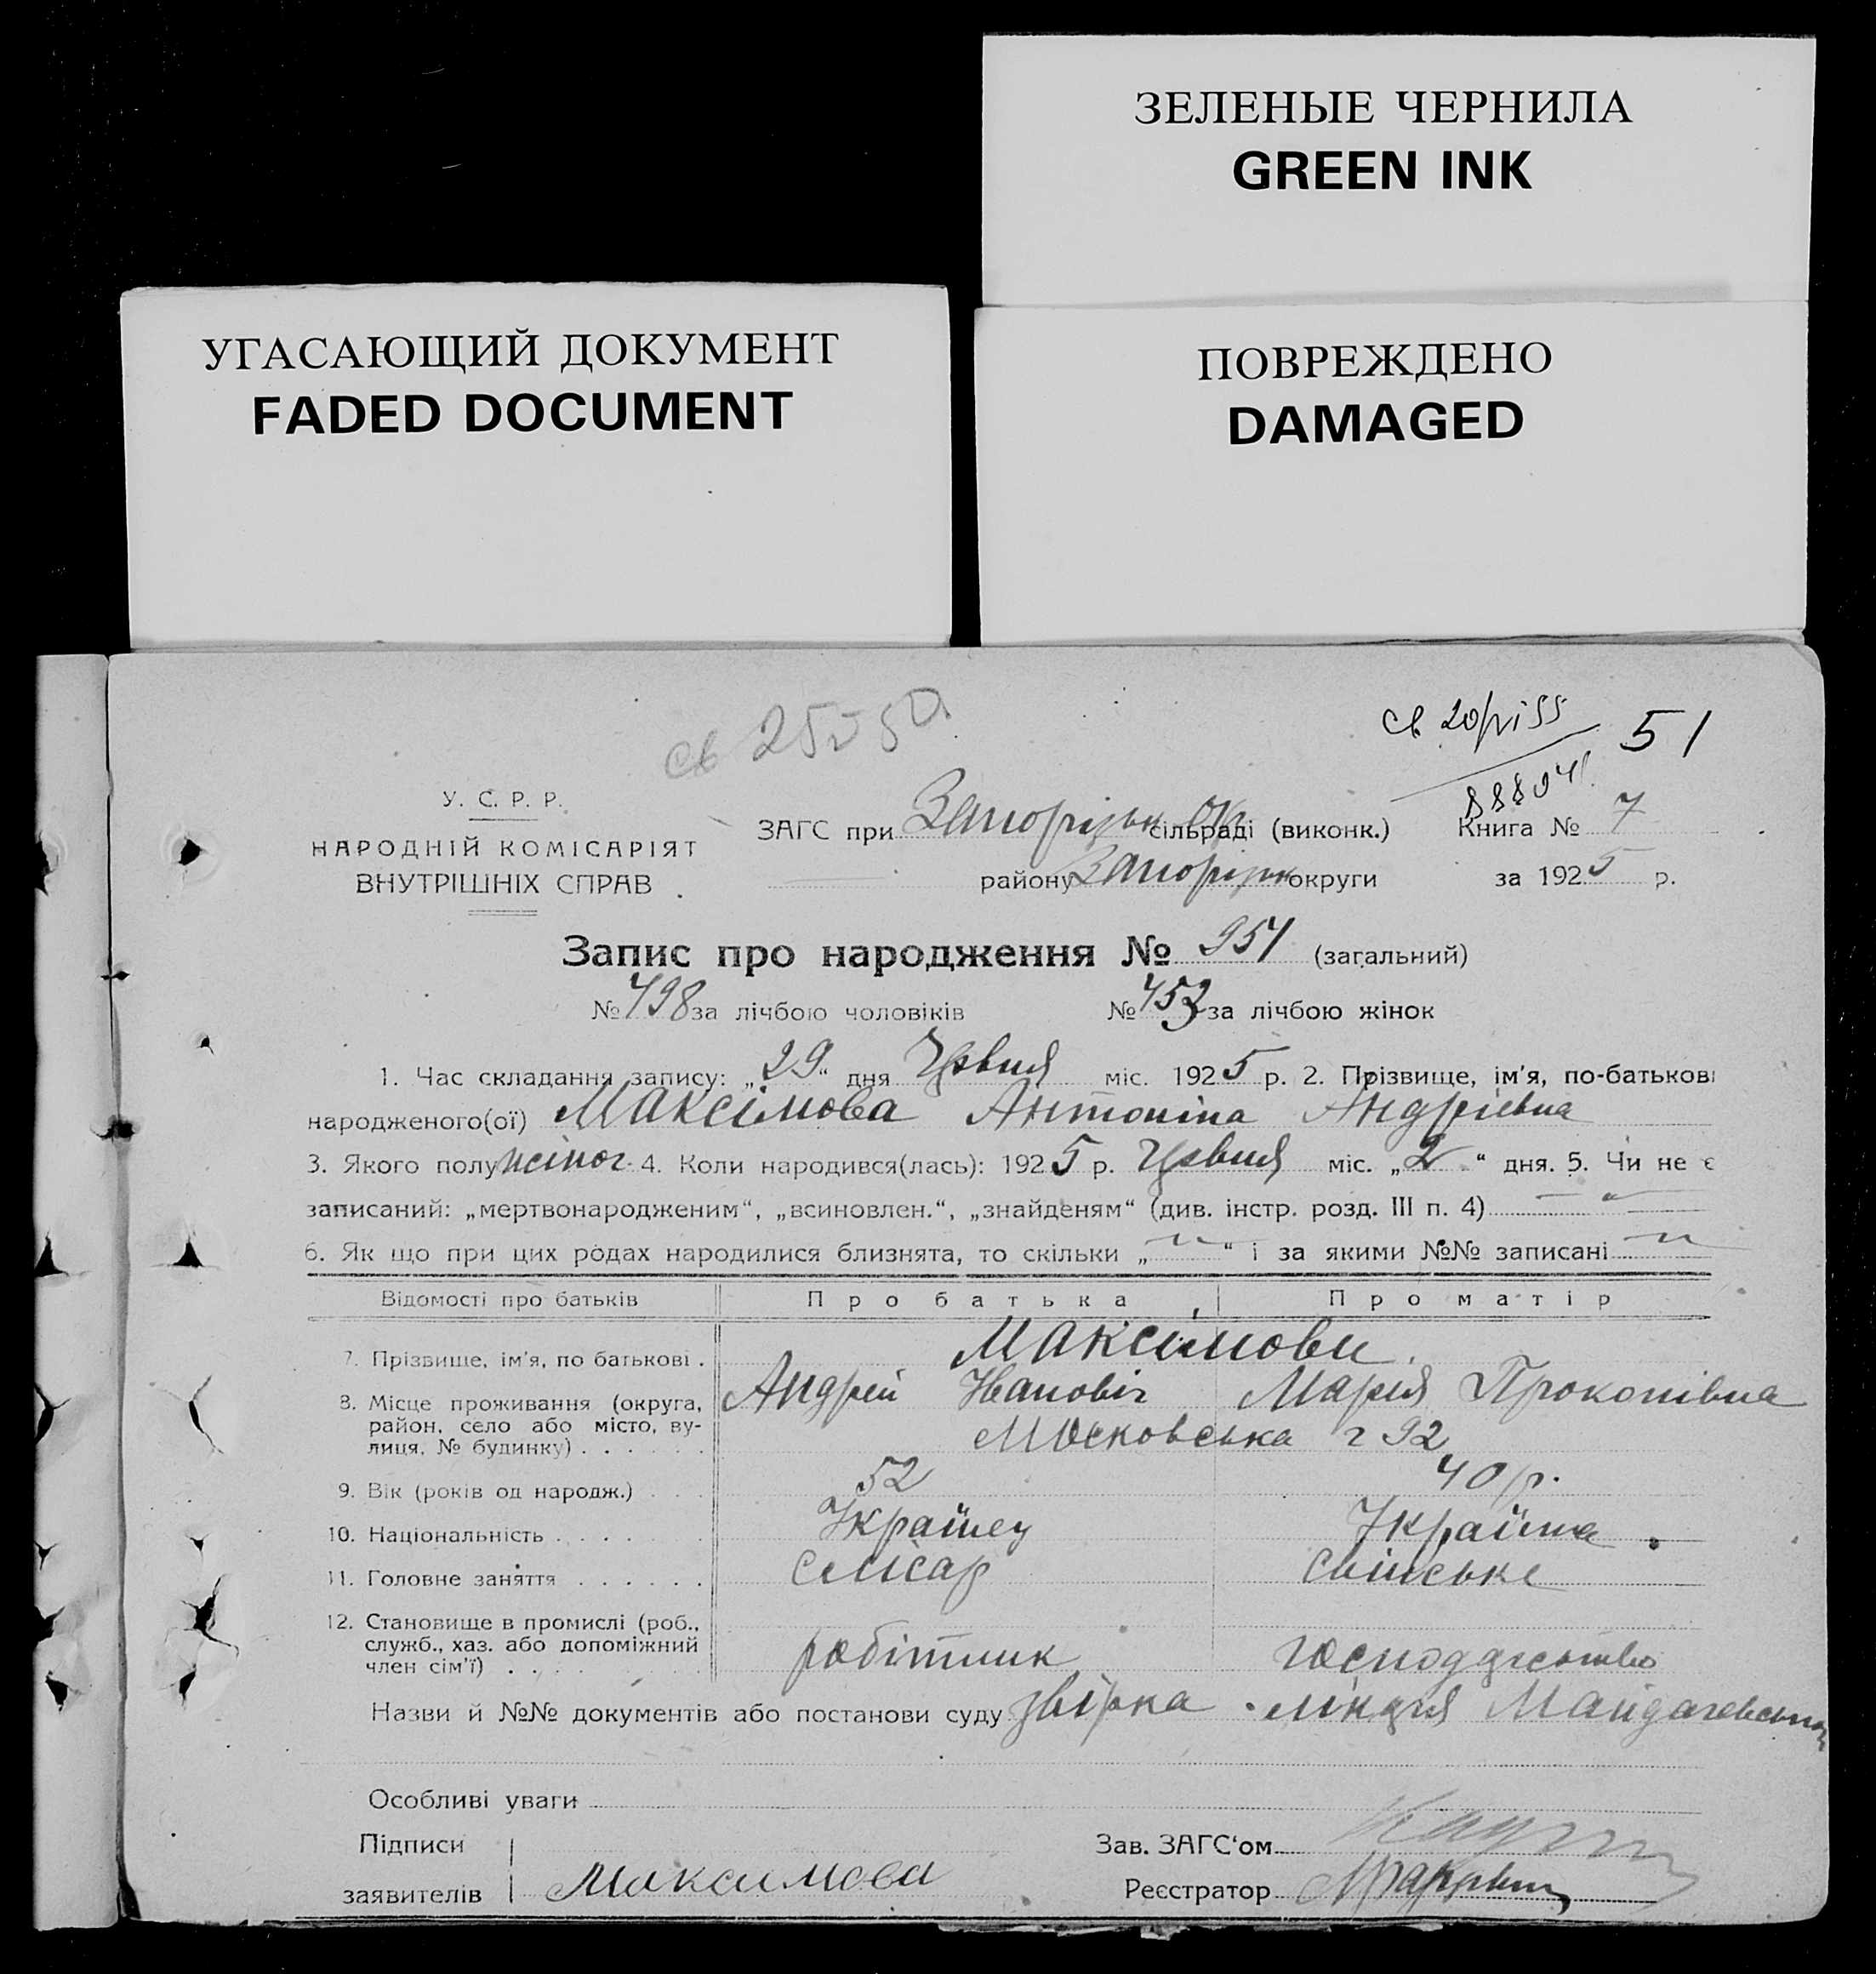 ЗЕЛЕНЫЕ ЧЕРНИЛА
GREEN INK
УГАСАЮЩИЙ ДОКУМЕНТ
FADED DOCUMENT
ПОВРЕЖДЕНО
DAMAGED
св
св 51
88804
У. С. Р. Р.
НАРОДНІЙ КОМІСАРІЯТ
ВНУТРІШНІХ СПРАВ
ЗАГС при Запорізьк Окр сільраді (виконк.) Книга № 7
району Запорізьк округи за 1925 р.
Запис про народження № 951 (загальний)
№ 498 за лічбою чоловіків № 453 за лічбою жінок
1. Час складання запису: „29“ дня Червня міс. 1925 р. 2. Прізвище, ім'я, по-батькові
народженого(ої) Максімова Антоніна Андріевна
3. Якого полу жіноч. 4. Коли народився(лась): 1925 р. Червня міс. „2“ дня. 5. Чи не є
записаний: „мертвонародженим“, „всиновлен.“, „знайденям“ (див. інстр. розд. III п. 4) — „ —
6. Як що при цих родах народилися близнята, то скільки „ “ і за якими №№ записані
Відомості про батьків Про батька Про матір
7. Прізвище, ім'я, по батькові . Максімови.
8. Місце проживання (округа, Андрей Іванович Марія Прокопівна
район, село або місто, ву- Московська ч 92
лиця, № будинку) . . . . . .
9. Вік (років од народж.) . . . 52 40 р.
10. Національність . . . . . . Українец Українка
11. Головне заняття . . . . . . слісар свійське
12. Становище в промислі (роб.,
служб., хаз. або допоміжний робітник господарство
член сім'ї) . . . .
Назви й №№ документів або постанови суду
Особливі уваги
Підписи Зав. ЗАГС'ом
заявителів Максимова Реєстратор